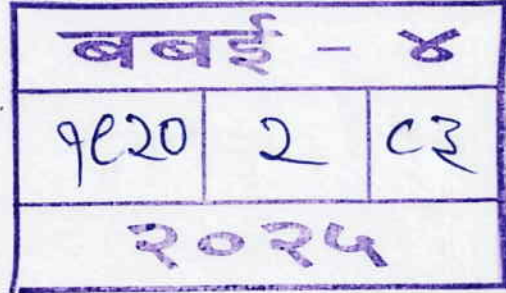 बबई - ४
१९२० २ ८३
२०२५